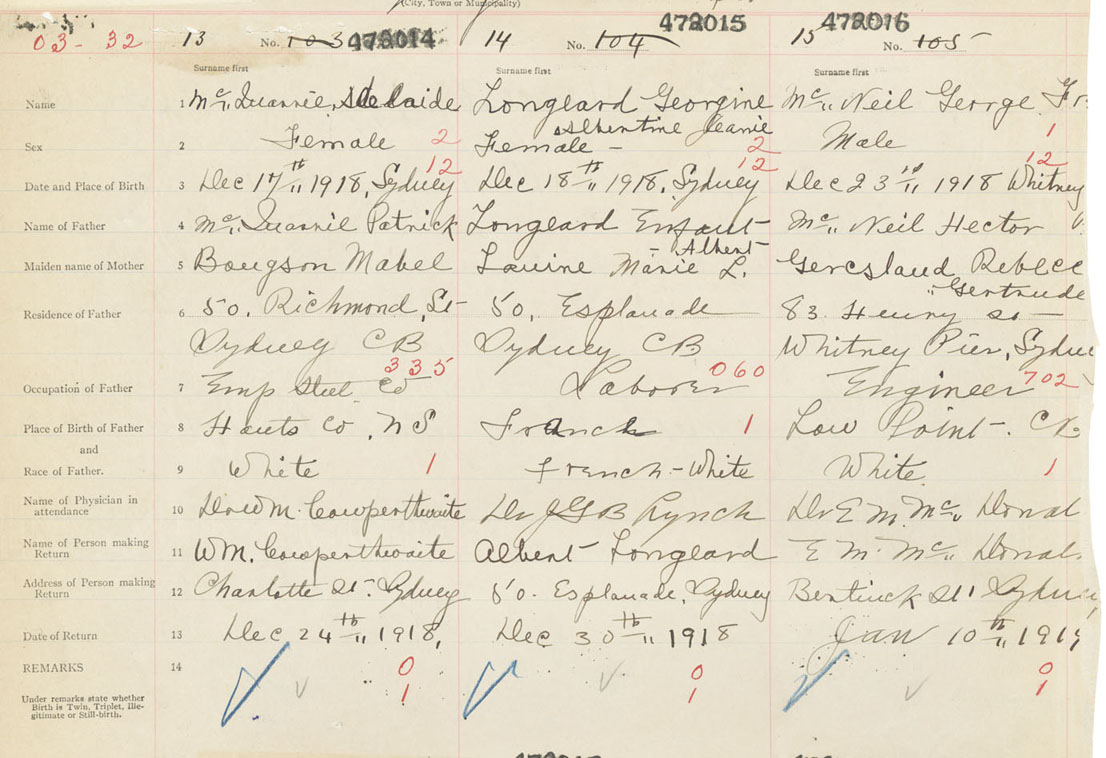 (City, Town or Municipality)
03-32
13 No. 103 472014
14 No. 104 472015
15 No. 105 472016
Surname first Surname first Surname first
Name 1 Mc„ Quarrie, Adelaide Longeard Georgine Mc„ Neil George Fr
Albertine Jeanie
Sex 2 Female 2 Female – 2 Male 1
12 12 12
Date and Place of Birth 3 Dec 17th„ 1918, Sydney Dec 18th„ 1918, Sydney Dec 23rd„ 1918 Whitney
Name of Father 4 Mc„ Quarrie Patrick Longeard Enfant Mc„ Neil Hector
– Albert
Maiden name of Mother 5 Bougson Mabel Louine Marie L.
Gertrude
Residence of Father 6 50, Richmond, St 50, Esplanade 83 Henry St –
Sydney CB Sydney CB Whitney Pier, Sydne
335 060 702
Occupation of Father 7 Emp Steel Co Laborer Engineer
Place of Birth of Father 8 Hants Co, NS France 1 Low Point – CB
and
Race of Father. 9 White 1 French – White White. 1
Name of Physician in
attendance 10 Dr W M. Cowperthwaite Dr JGB Lynch Dr E M. Mc„ Donal
Name of Person making
Return 11 WM. Cowperthwaite Albert Longeard E M. Mc„ Donal
Address of Person making
Return 12 Charlotte St. Sydney 50. Esplanade, Sydney Bentinck St Sydney
Date of Return 13 Dec 24th„ 1918, Dec 30th„ 1918 Jan 10th„ 1919
REMARKS 14 0 0 0
1 1 1
Under remarks state whether
Birth is Twin, Triplet, Ille-
gitimate or Still-birth.